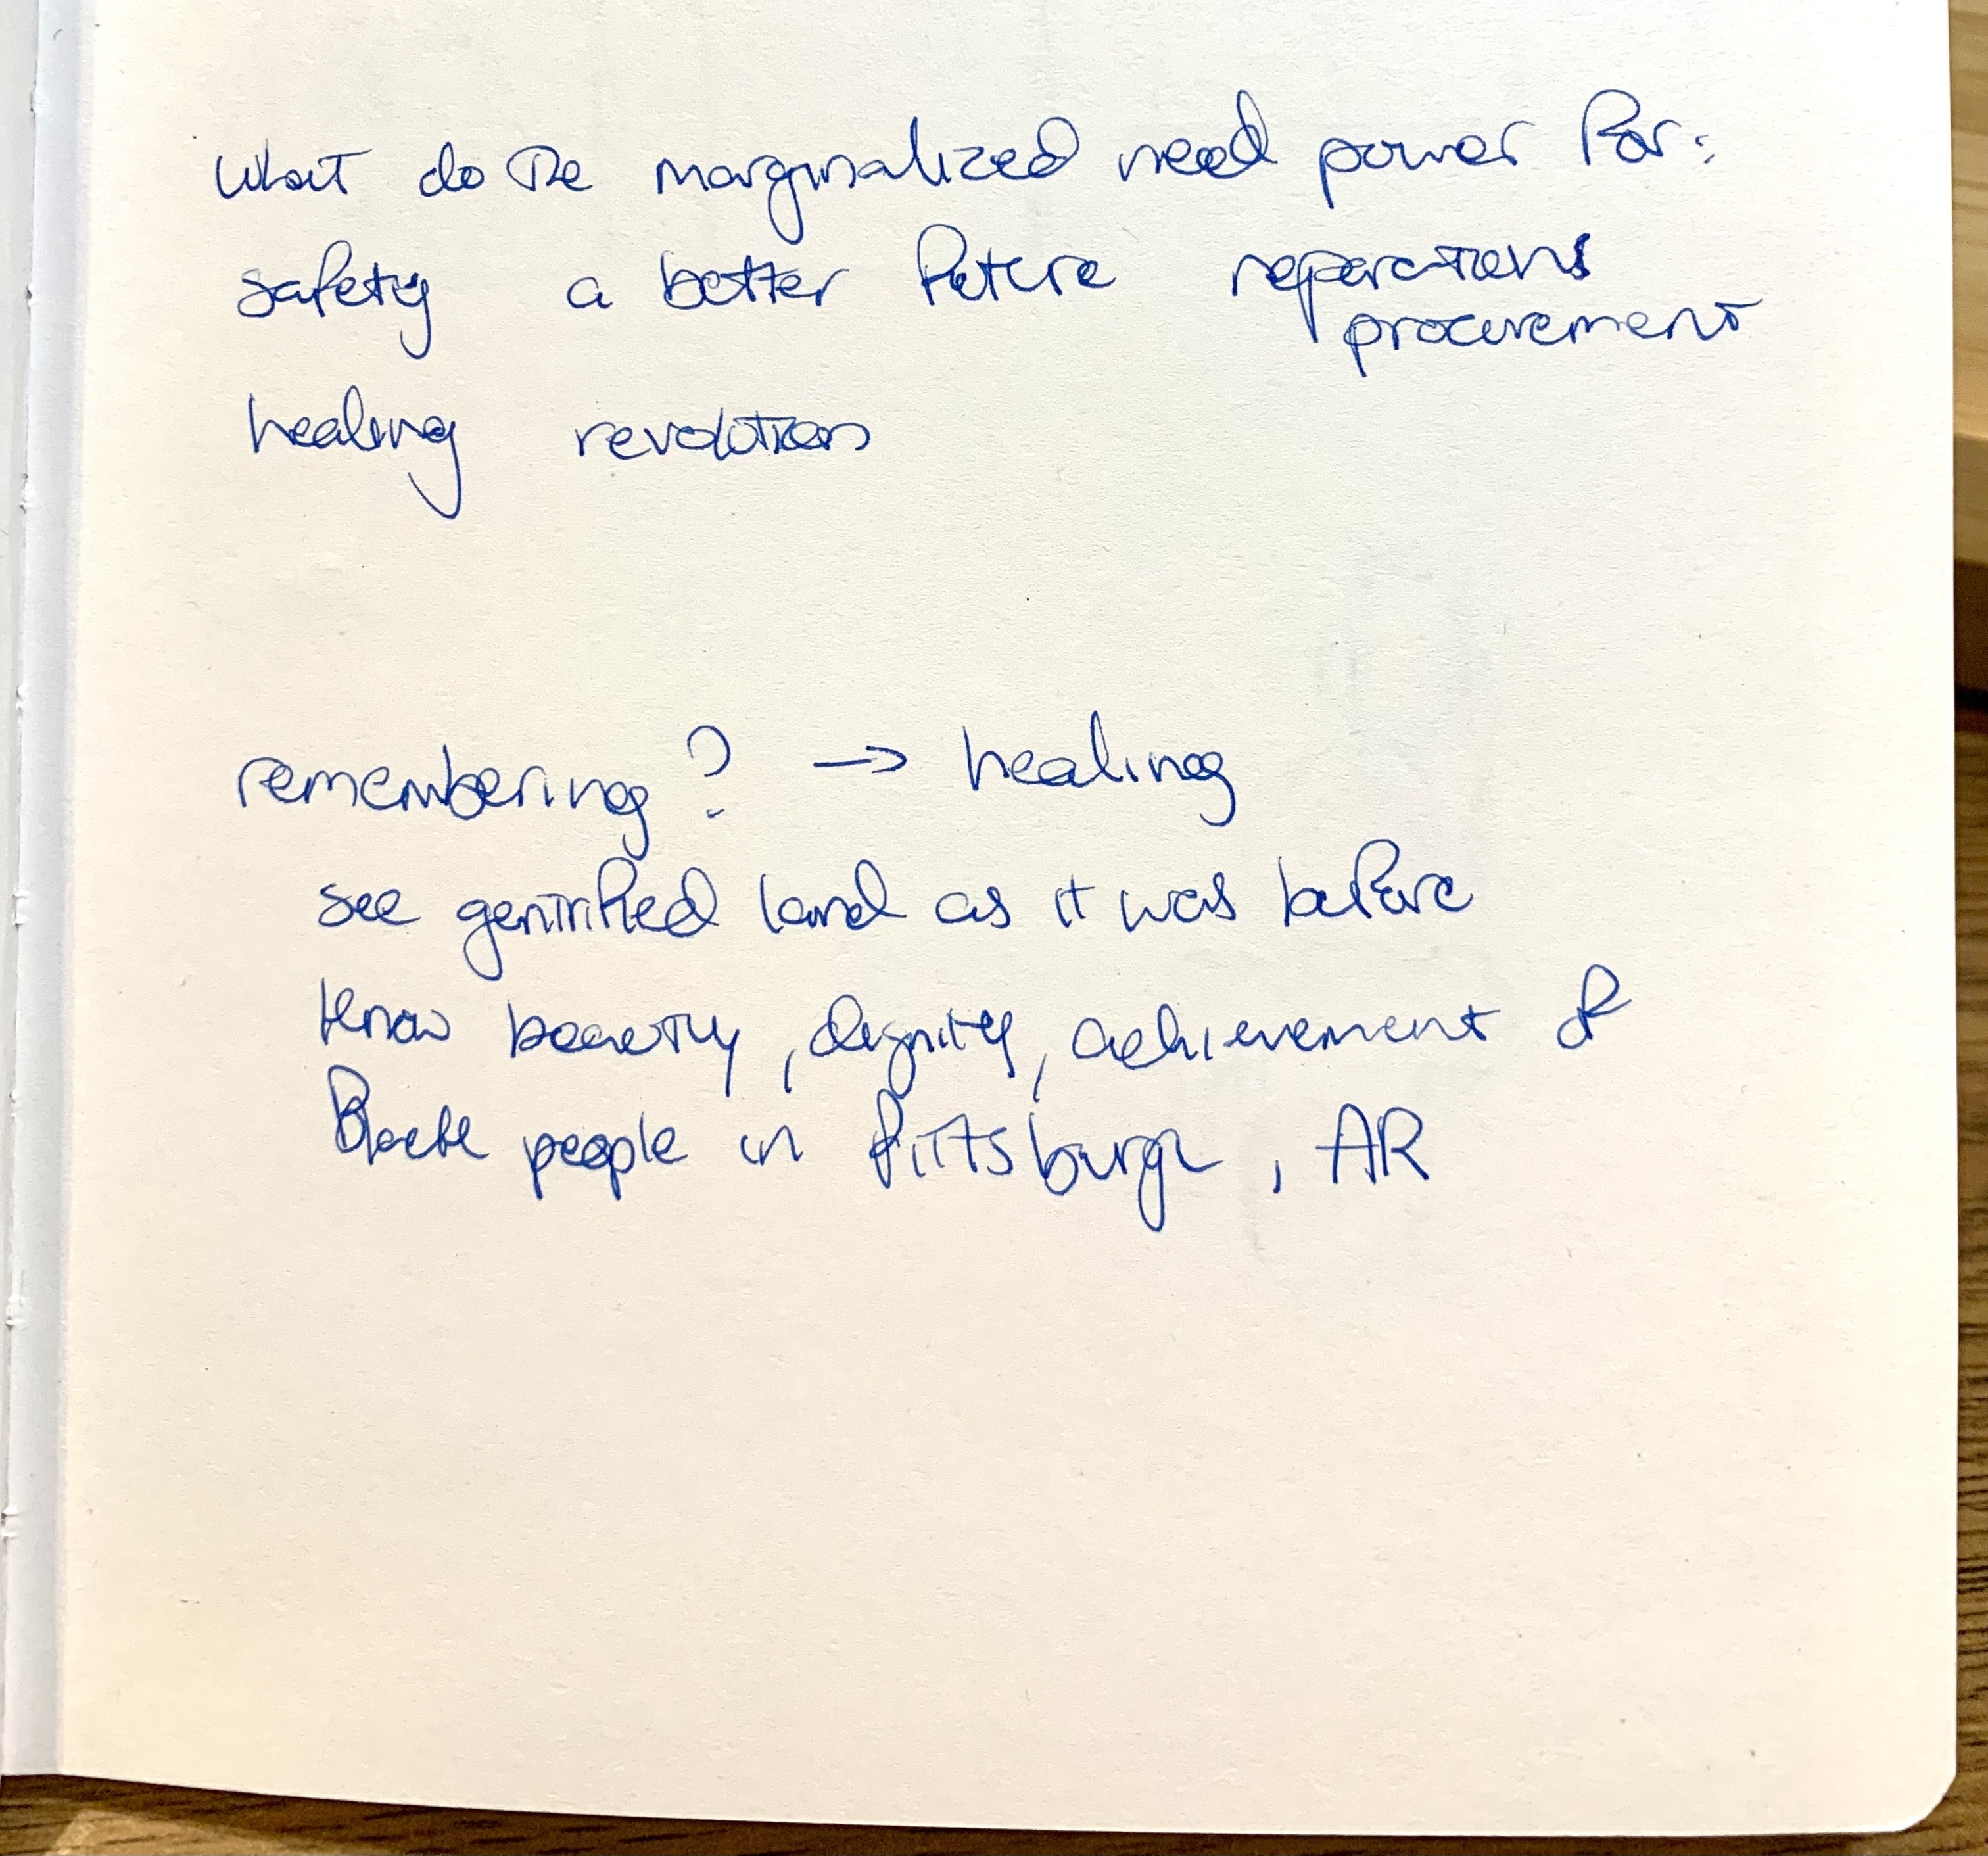 What do the marginalized need power for:
safety a better future reparations
procurement
healing revolution
remembering? → healing
see gentrified land as it was before
know beauty, dignity, achievement of
Black people in Pittsburgh, AR